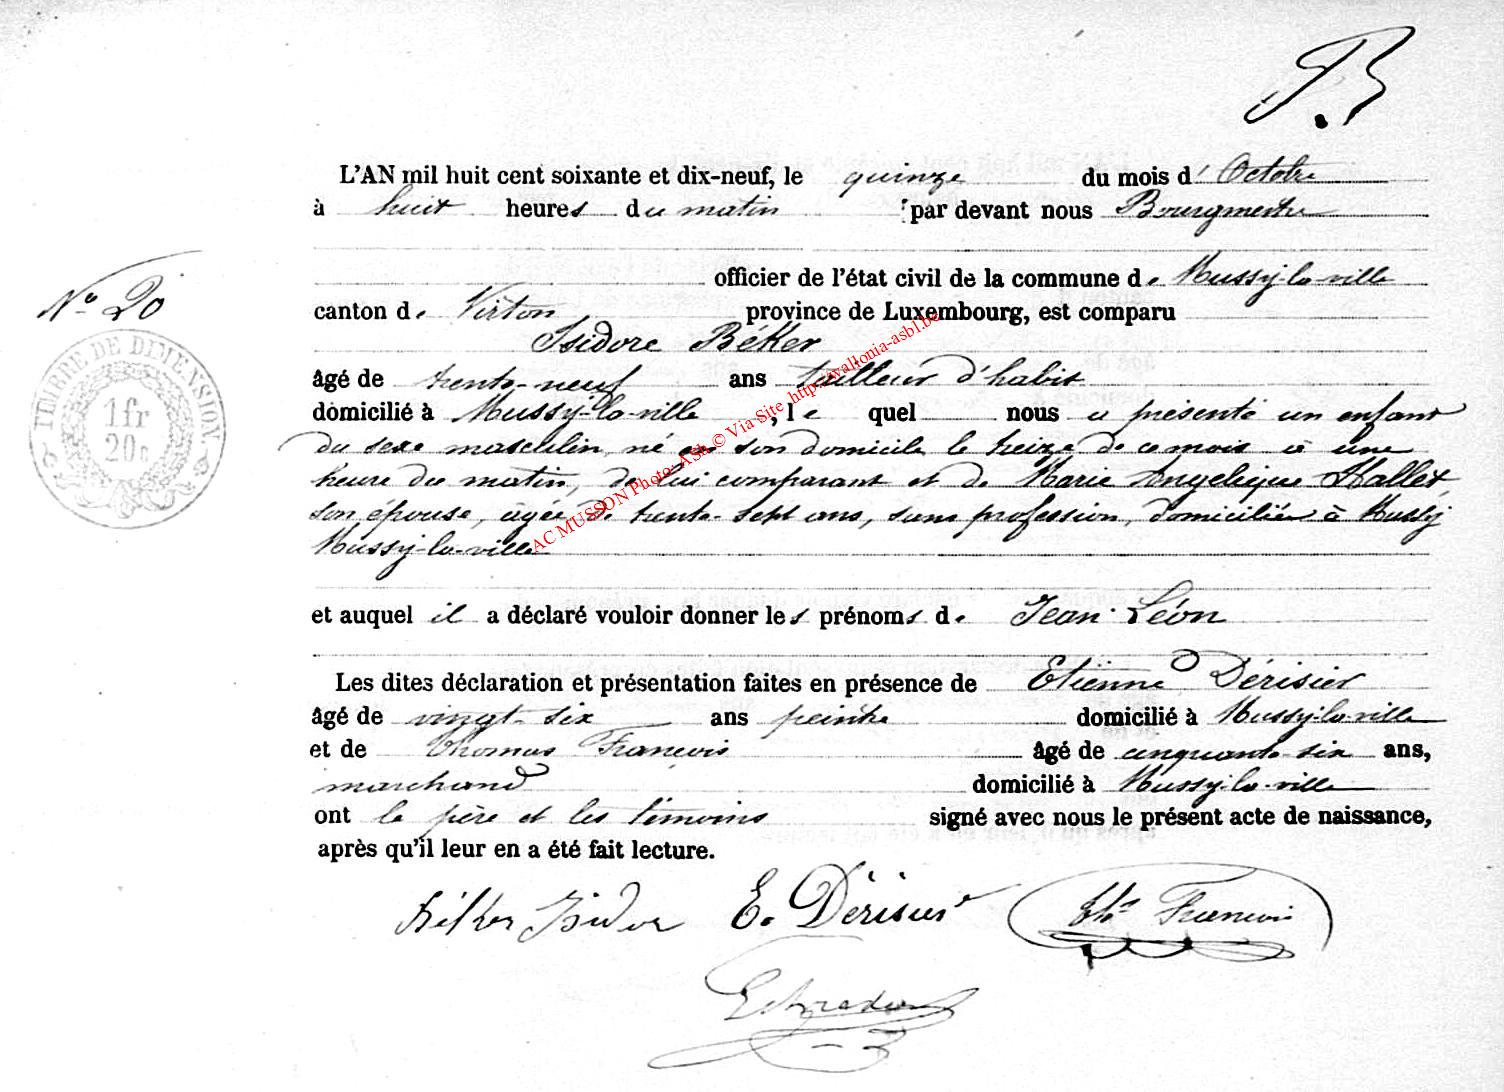 L'AN mil huit cent soixante et dix-neuf, le quinze du mois d'Octobre
à huit heures du matin par devant nous Bourgmestre
officier de l'état civil de la commune de Mussy-la-ville
No 20
canton de Virton province de Luxembourg, est comparu
Isidore Béker
âgé de trente-neuf ans tailleur d'habit
domicilié à Mussy-la-ville, le quel nous a présenté un enfant
du sexe masculin, né en son domicile le treize de ce mois à une
heure du matin, de lui comparant et de Marie Angelique Hallet,
son épouse, âgée de trente-sept ans, sans profession, domiciliée à Mussy
Mussy-la-ville
TIMBRE DE DIMENSION.
1 fr
20 c
AC MUSSON Photo-ASA © Via Site http://wallonia-asbl.be
et auquel il a déclaré vouloir donner les prénoms de Jean Léon
Les dites déclaration et présentation faites en présence de Etienne Dérisier
âgé de vingt-six ans peintre domicilié à Mussy-la-ville
et de Thomas François âgé de cinquante-six ans,
marchand domicilié à Mussy-la-ville
ont le père et les témoins signé avec nous le présent acte de naissance,
après qu'il leur en a été fait lecture.
Béker Isidor E. Dérisier Ths François